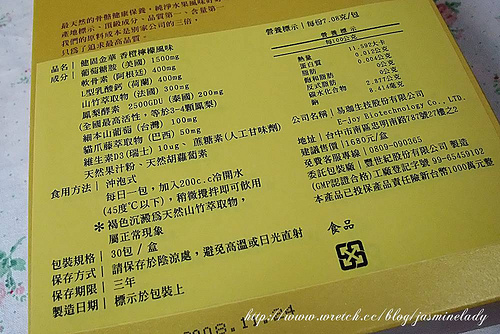 最天然的骨骼健康保養，純淨水果風味
產地標示、頂級成分、品質第一、含量第一
我們的原料成本是別家公司的三倍，
只為了追求最高品質。
品名｜健固金華 香橙檸檬風味
成分｜葡萄糖胺（美國）1500mg
軟骨素（阿根廷）400mg
L型乳酸鈣（荷蘭）400mg
山竹萃取物（法國）300mg
鳳梨酵素 2500GDU（泰國）200mg
（全國最高活性，等於3-4顆鳳梨）
細本山葡萄（台灣）100mg
貓爪藤萃取物（巴西）50mg
維生素D3（瑞士）10ug、蔗糖素（人工甘味劑）
天然果汁粉、天然胡蘿蔔素
食用方法｜沖泡式
每日一包，加入200c.c.冷開水
（45度℃以下），稍微攪拌即可飲用
＊褐色沉澱為天然山竹萃取物，
屬正常現象
包裝規格｜30包 / 盒
保存方式｜請保存於陰涼處，避免高溫或日光直射
保存期限｜三年
製造日期｜標示於包裝上
營養標示｜每份7.08公克/包
每100公克
熱量 11.592大卡
蛋白質 0.012公克
脂肪 0.004公克
飽和脂肪
反式脂肪
碳水化合物 2.877公克
鈉 8.414毫克
公司名稱｜易珈生技股份有限公司
E-Joy Biotechnology Co., LTD.
地址｜台中市南區忠明南路787號27樓之2
建議售價｜1680元/盒
免費客服專線｜0809-090365
委託包裝廠｜豐世紀股份有限公司 製造
（GMP認證合格）工廠登記字號 99-65459102
本產品已投保產品責任險新台幣1000萬元整
食品
http://www.wretch.cc/blog/jasminelady